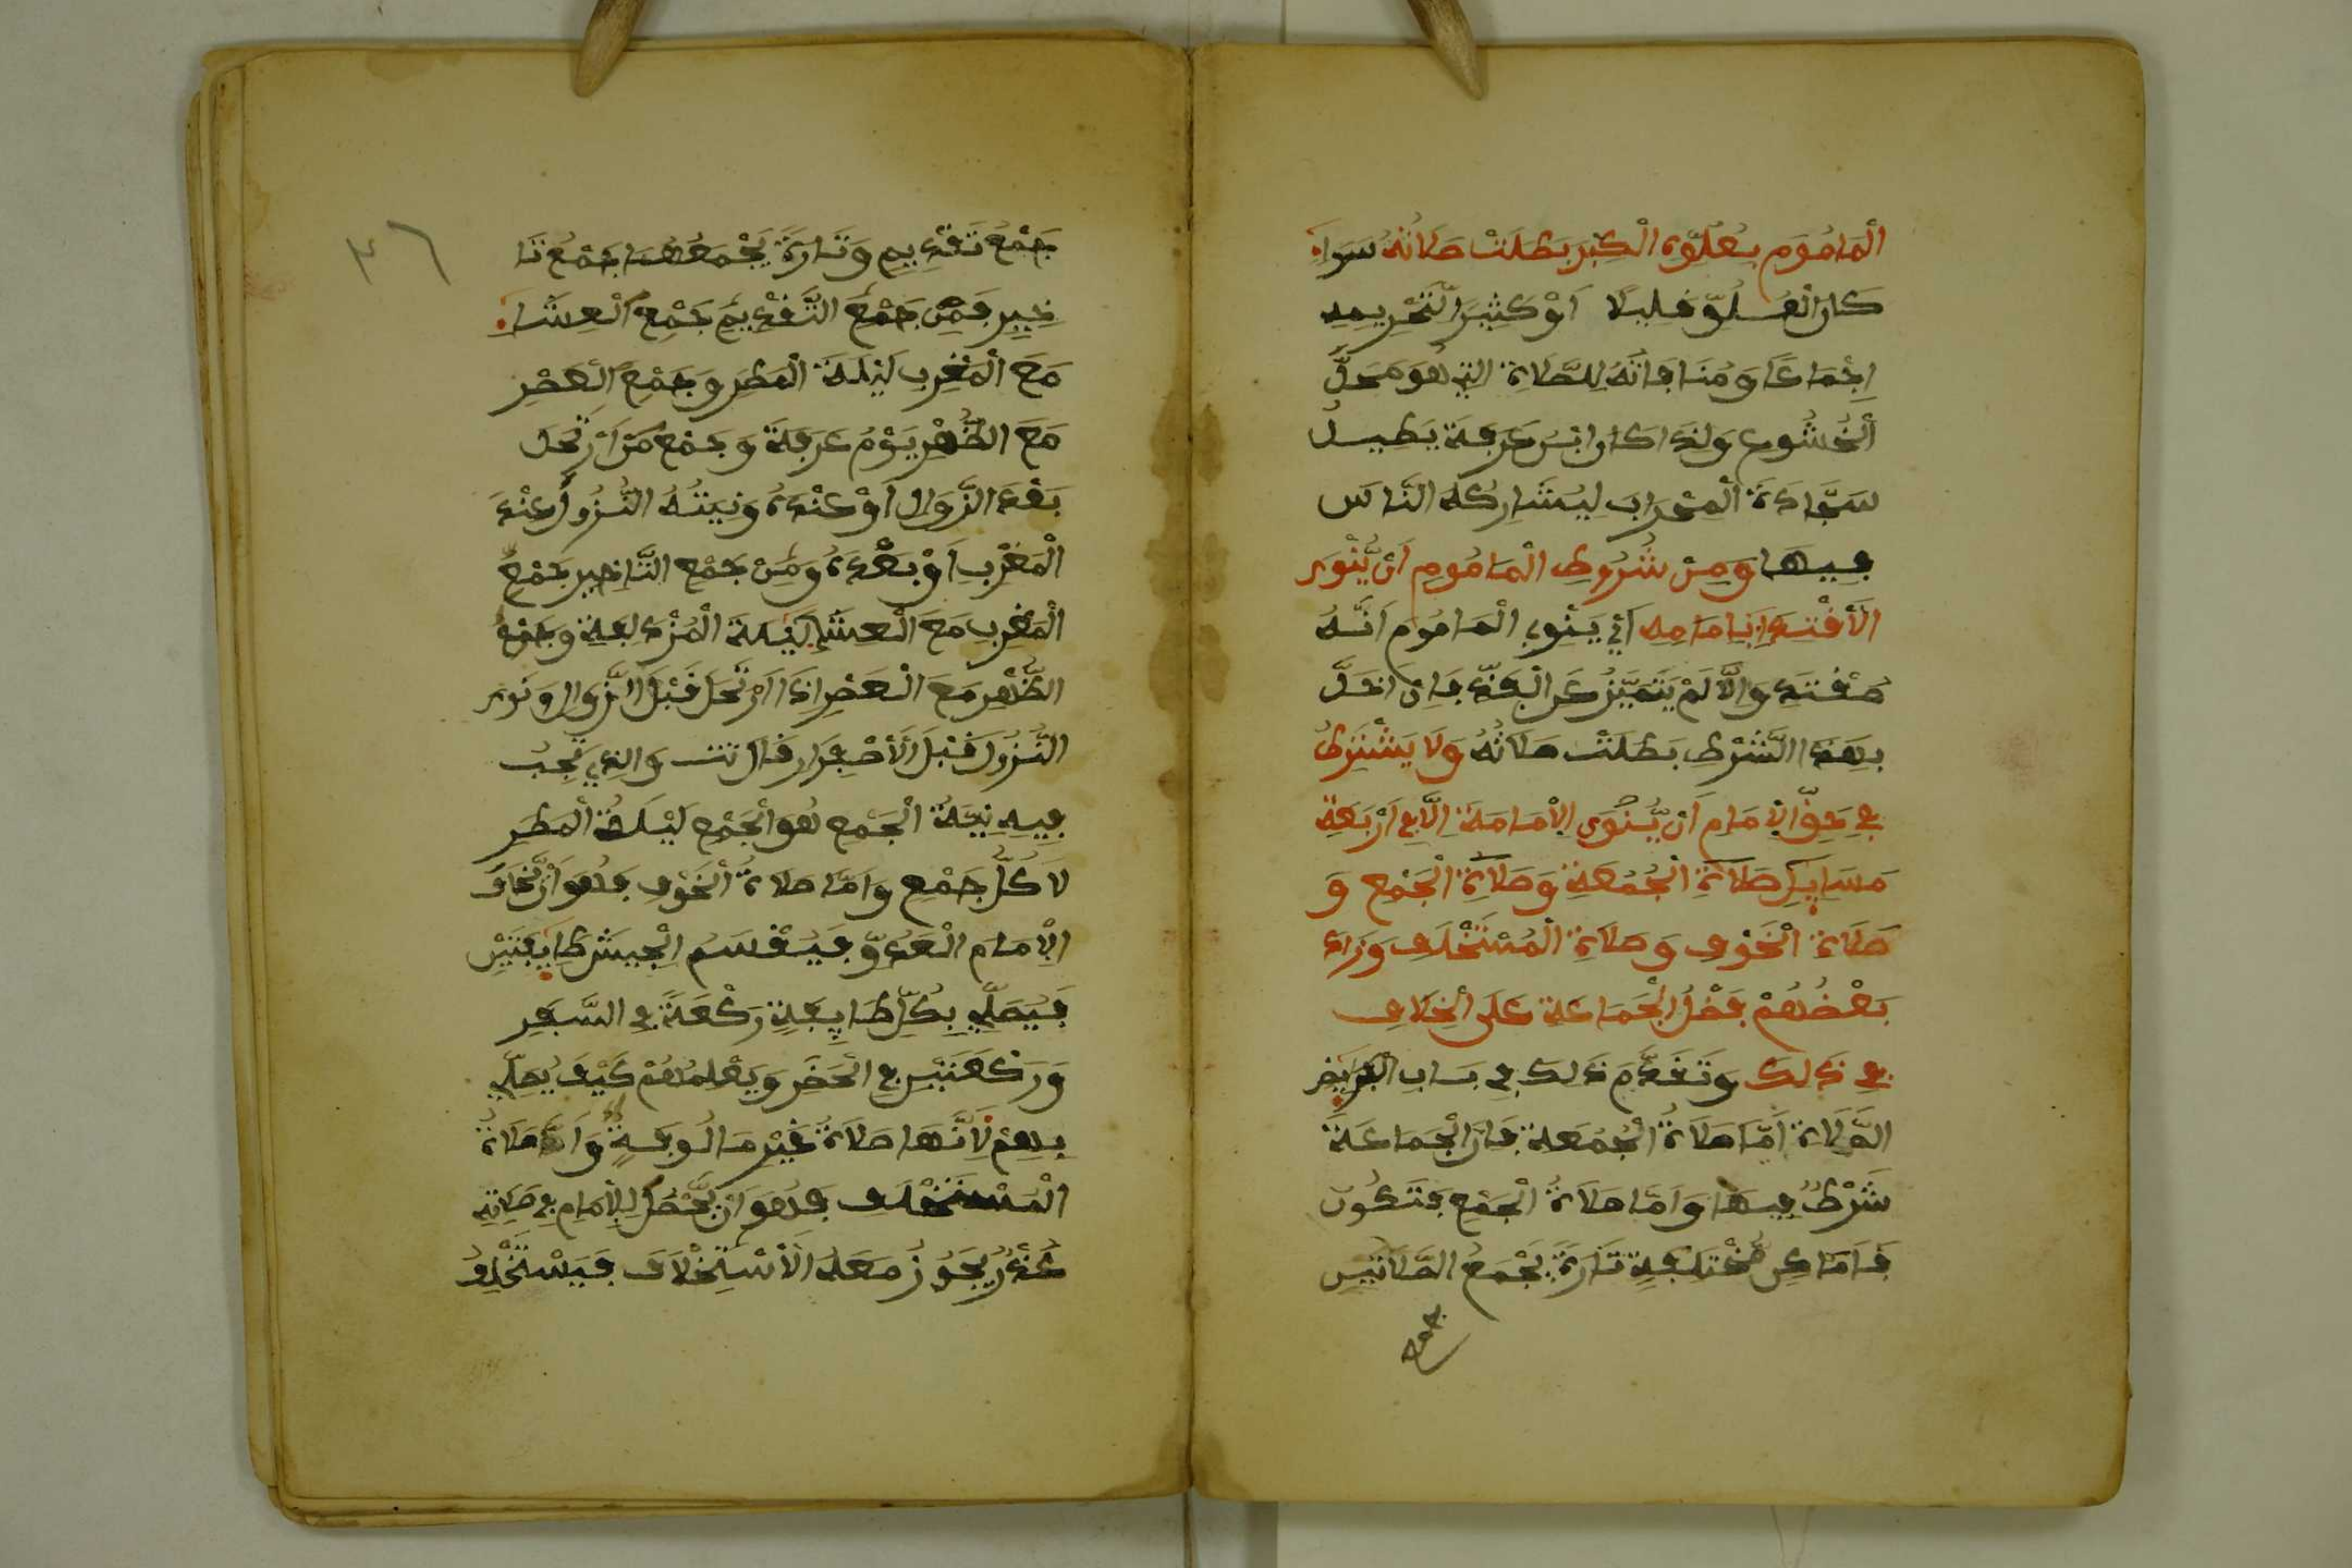 الْمَامُومِ بِعُلُوِّهِ الْكِبْرَ بَطَلَتْ صَلَاتُهُ سَوَاءٌ
كَانَ الْعُلُوُّ قَلِيلًا أَوْ كَثِيرًا لِتَحْرِيمِهِ
إِجْمَاعًا وَمُنَافَاتِهُ لِلصَّلَاةِ التِي هُوَ مَحَلُّ
الْخُشُوعِ وَلِذَا كَانَ ابْنُ عَرَفَةَ يُطِيلُ
سَجَّادَةَ الْمِحْرَابِ لِيُشَارِكَهُ النَّاسُ
فِيهَا وَمِنْ شُرُوطِ الْمَامُومِ أَنْ يَّنْوِيَ
الْاقْتِدَا بِإِمَامِهِ أَيْ يَنْوِي الْمَامُوم أَنَّهُ
مُقْتَدٍ وَإِلَّا لَمْ يَتَمَيَّزْ عَنِ الْفَذِّ فَإِنْ أَخَلَّ
بِهَذَا الشَّرْطِ بَطَلَتْ صَلَاتُهُ وَلَا يَشْتَرِطُ
فِي حَقِّ الْإِمَامِ أَنْ يَّنْوِيَ الْإِمَامَةَ إِلَّا فِي أَرْبَعَةِ
مَسَايِلَ صَلَاةِ الْجُمُعَةِ وَصَلَاةِ الْجَمْعِ وَ
صَلَاةِ الْخَوْفِ وَصَلَاةِ الْمُسْتَخْلَفِ وَزَادَ
بَعْضُهُمْ فَضْلُ الْجَمَاعَةِ عَلَى الْخِلَافِ
فِي ذَلِكَ وَتَقَدَّمَ ذَلِكَ فِي بَابِ الْفَرَايِضِ
الصَّلَاةِ أَمَّا صَلَاةُ الْجُمُعَةِ فَإِنَّ الْجَمَاعَةَ
شَرْطٌ فِيهَا وَأَمَّا صَلَاةُ الْجَمْعِ فَتَكُونُ
فِي أَمَاكِنَ مُخْتَلِفَةٍ تَارَةً يَجْمَعُ الصَّلَاتَيْنِ
جمع
٣٦
جَمْعَ تَقْدِيمٍ وَتَارَةً يَجْمَعُهُمَا جَمْعَ تَا
خِيرٍ فَمِنْ جَمْعِ التَّقْدِيمِ جَمْعُ الْعِشَاءِ
مَعَ الْمَغْرِبِ لَيْلَةَ الْمَطَرِ وَجَمْعِ الْعَصْرِ
مَعَ الظُّهْرِ يَوْمَ عَرَفَةَ وَجَمْعُ مَنْ ارْتَحَلَ
بَعْدَ الزَّوَالِ أَوْ عِنْدَهُ وَنِيَّتُهُ النُّزُولُ عِنْدَ
الْمَغْرِبِ أَوْ بَعْدَهُ وَمِنْ جَمْعِ التَّاخِيرِ جَمْعِ
الْمَغْرِبِ مَعَ الْعِشَاءِ لَيْلَةَ الْمُزْدَلِفَةِ وَجَمْعُ
الظُّهْرِ مَعَ الْعَصْرِ إِذَا ارْتَحَلَ قَبْلَ الزَّوَالِ وَنَوَى
النُّزُولَ قَبْلَ الْاصْفِرَارِ قَالَ تت وَالذِي تَجِبُ
فِيهِ نِيَّةُ الْجَمْعِ هُوَ الْجَمْعِ لَيْلَةَ الْمَطَرِ
لَا كُلُّ جَمْعٍ وَأَمَّا صَلَاةُ الْخَوْفِ فَهُوَ أَنْ يَّخَافَ
الْإِمَامُ الْعَدُوَّ فَيَقْسَمُ الْجَيْشَ طَايِفَتَيْنِ
فَيُصَلِّي بِكُلِّ طَايِفَةٍ رَكْعَةً فِي السَّفَرِ
وَرَكْعَتَيْنِ فِي الْحَضَرِ وَيُعْلِمُهُمْ كَيْفَ يُصَلِّي
بِهِمْ لِأَنَّهَا صَلَاةٌ غَيْرُ مَالُوفَةٍ وَأَمَّا صَلَاةُ
الْمُسْتَخْلَفِ فَهُوَ أَنْ يَّحْصُلَ لِلْإِمَامِ فِي صَلَاتِهِ
عُذْرٌ يَجُوزُ مَعَهُ الْاسْتِخْلَافُ فَيَسْتَخْلِفُ